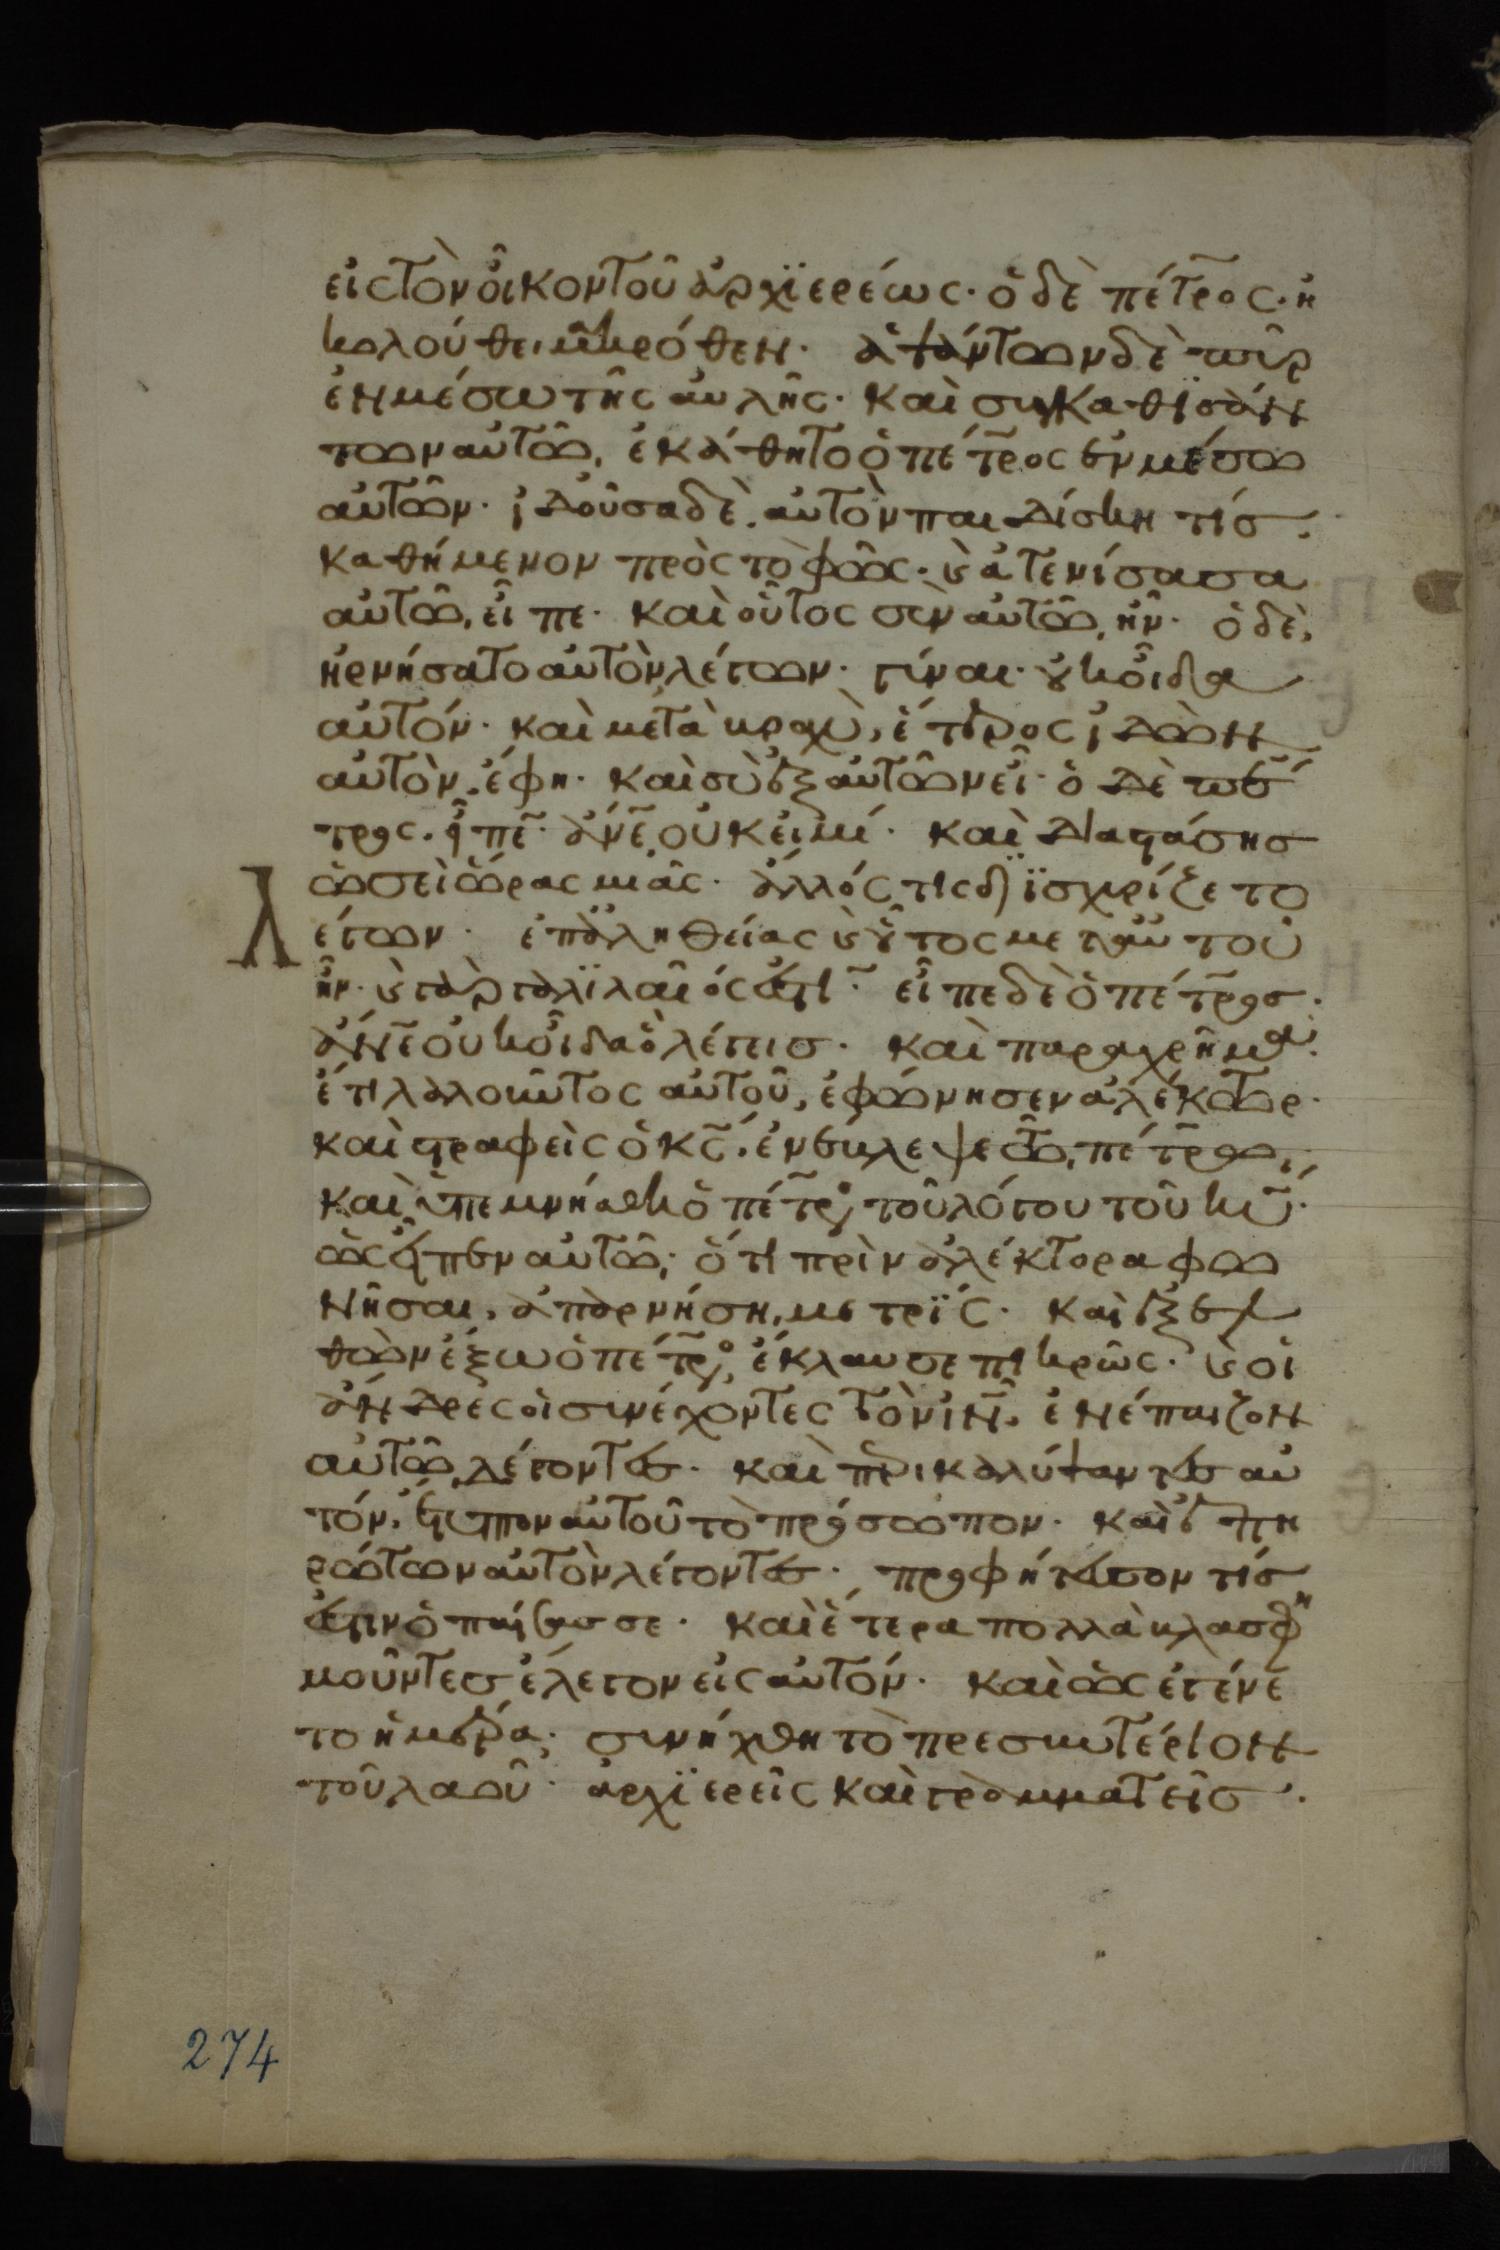 εἰς τὸν οἶκον τοῦ ἀρχϊερέως· ὁ δὲ πέτρος· ἠ
κολούθει μακρόθεν· ἁψάντων δὲ πῦρ
ἐν μέσω τῆς αὐλῆς· καὶ συγκαθϊσάν
των αὐτῶ, ἐκάθητο ὁ πέτρος ἐν μέσω
αὐτῶν· ἰδοῦσα δὲ αὐτὸν παιδίσκη τίσ·
καθήμενον πρὸς τὸ φῶς· κ ἀτενίσασα
αὐτῶ, εἶπε· καὶ οὗτος σὺν αὐτῶ, ἦν· ὁ δὲ,
ἠρνήσατο αὐτὸν λέγων· γύναι· οὐκ οἶδα
αὐτόν· καὶ μετὰ βραχὺ, ἕτερος ἰδὼν
αὐτὸν· ἔφη· καὶ σὺ ἐξ αὐτῶν εἶ· ὁ δὲ πέ
τρος· εἶπε· ἄνε, οὐκ εἰμί· καὶ διαστάσησ
ὡσεὶ ὥρας μιᾶς· ἄλλός τις δϊϊσχυρίζετο
λέγων· ἐπ ἀληθείας κ οὗτος μετ αὐτοῦ
ἦν· κ γὰρ γαλϊλαῖός ἐστι· εἶπε δὲ ὁ πέτρος·
ἄνε οὐκ οἶδα ὃ λέγεισ· καὶ παραχρῆμα·
ἔτι λαλοῦντος αὐτοῦ, ἐφώνησεν ἀλέκτωρ·
καὶ στραφεὶς ὁ κς· ἐνέβλεψε τῶ, πέτρω,
καὶ ὑπεμνήσθη ὁ πέτρος τοῦ λόγου τοῦ κυ·
ὡς εἶπεν αὐτῶ· ὅτι πρὶν ἀλέκτορα φω
νῆσαι, ἀπαρνήση, με τρϊς· καὶ ἐξελ
θὼν ἔξω ὁ πέτρος, ἔκλαυσε πικρῶς· κ οἱ
ἄνδρες οἱ συνέχοντες τὸν ιν· ἐνέπαιζον
αὐτῶ, δέροντεσ· καὶ περικαλύψαντεσ αὐ
τόν· ἔτυπτον αὐτοῦ τὸ πρόσωπον· καὶ ἐπη
ρώτων αὐτὸν λέγοντεσ· προφήτευσον τίς
ἐστιν ὁ παίσασ σε· καὶ ἕτερα πολλὰ βλασφη
μοῦντεσ ἔλεγον εἰς αὐτόν· καὶ ὡς ἐγένε
το ἡμέρα· συνήχθη τὸ πρεσβυτέριον
τοῦ λαοῦ· ἀρχϊερεῖς καὶ γραμματεῖσ·
274